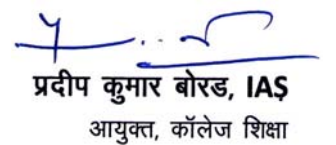 प्रदीप कुमार बोरड, IAS
आयुक्त, कॉलेज शिक्षा